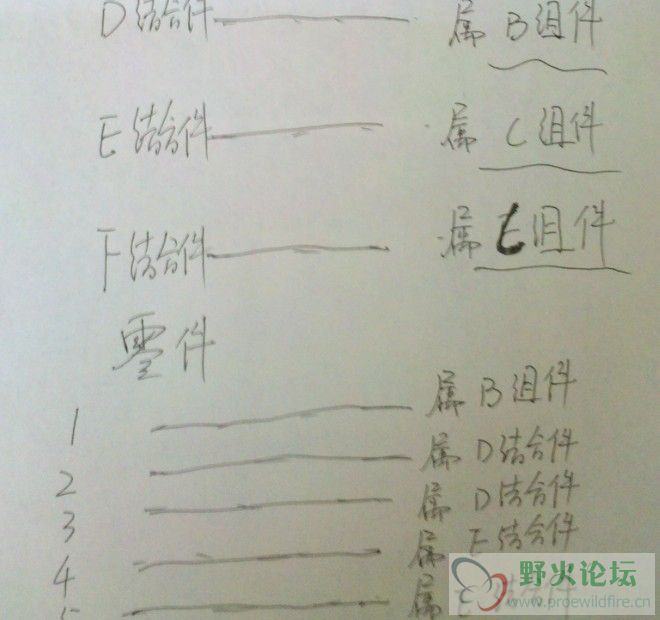 D结合件 属 B组件
E结合件 属 C组件
F结合件 属 组件
零件
1 属 B组件
2 属 D结合件
3 属 D结合件
4 属 E结合件
5 属 结合件
野火论坛
www.proewildfire.cn